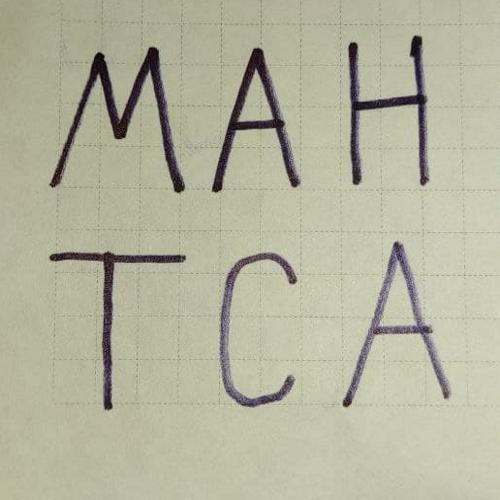 MAH
TCA